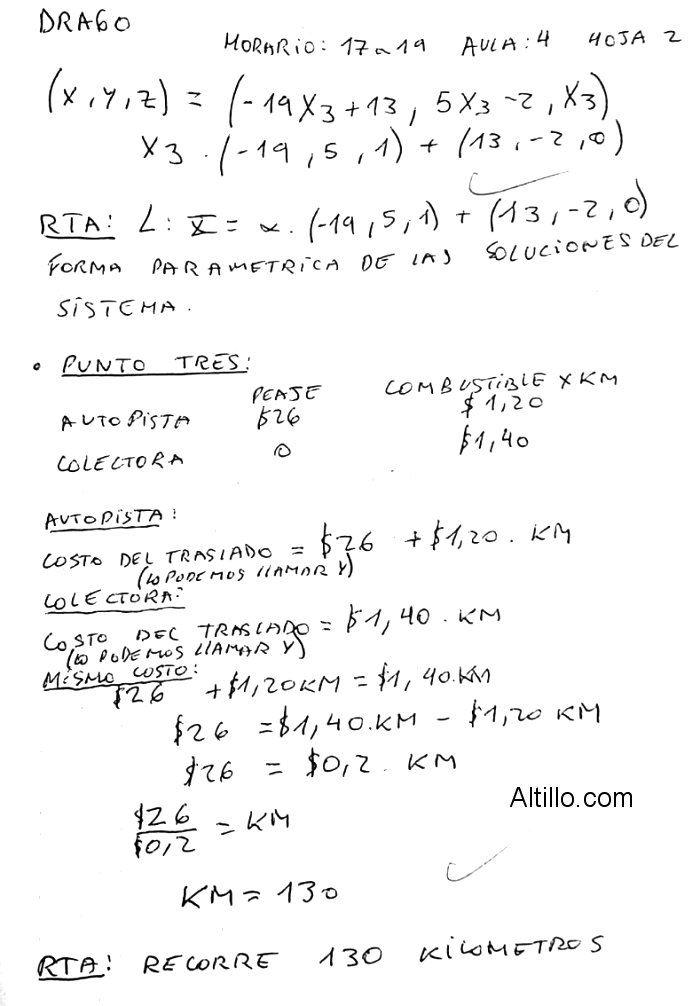 DRAGO
HORARIO: 17 a 19 AULA: 4 HOJA 2
(X, Y, Z) = (-19X3 + 13, 5X3 - 2, X3)
X3 . (-19, 5, 1) + (13, -2, 0)
RTA: L: X = α. (-19, 5, 1) + (13, -2, 0)
FORMA PARAMETRICA DE LAS SOLUCIONES DEL
SISTEMA.
• PUNTO TRES:
PEAJE COMBUSTIBLE X KM
AUTOPISTA $26 $1,20
COLECTORA 0 $1,40
AUTOPISTA:
COSTO DEL TRASLADO = $26 + $1,20 . KM
(LO PODEMOS LLAMAR Y)
COLECTORA:
COSTO DEL TRASLADO = $1,40 . KM
(LO PODEMOS LLAMAR Y)
MISMO COSTO:
$26 + $1,20 KM = $1,40.KM
$26 = $1,40.KM - $1,20 KM
$26 = $0,2. KM
Altillo.com
$26 / $0,2 = KM
KM = 130
RTA: RECORRE 130 KILOMETROS